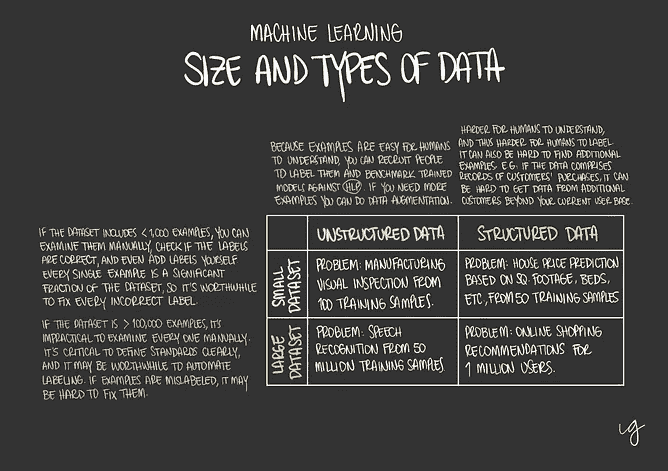 MACHINE LEARNING
SIZE AND TYPES OF DATA
BECAUSE EXAMPLES ARE EASY FOR HUMANS
TO UNDERSTAND, YOU CAN RECRUIT PEOPLE
TO LABEL THEM AND BENCHMARK TRAINED
MODELS AGAINST HLP. IF YOU NEED MORE
EXAMPLES YOU CAN DO DATA AUGMENTATION.
HARDER FOR HUMANS TO UNDERSTAND,
AND THUS HARDER FOR HUMANS TO LABEL
IT CAN ALSO BE HARD TO FIND ADDITIONAL
EXAMPLES. E.G: IF THE DATA COMPRISES
RECORDS OF CUSTOMERS' PURCHASES, IT CAN
BE HARD TO GET DATA FROM ADDITIONAL
CUSTOMERS BEYOND YOUR CURRENT USER BASE.
IF THE DATASET INCLUDES < 1,000 EXAMPLES, YOU CAN
EXAMINE THEM MANUALLY, CHECK IF THE LABELS
ARE CORRECT, AND EVEN ADD LABELS YOURSELF
EVERY SINGLE EXAMPLE IS A SIGNIFICANT
FRACTION OF THE DATASET, SO IT'S WORTHWHILE
TO FIX EVERY INCORRECT LABEL.
IF THE DATASET IS > 100,000 EXAMPLES, IT'S
IMPRACTICAL TO EXAMINE EVERY ONE MANUALLY.
IT'S CRITICAL TO DEFINE STANDARDS CLEARLY,
AND IT MAY BE WORTHWHILE TO AUTOMATE
LABELING. IF EXAMPLES ARE MISLABELED, IT MAY
BE HARD TO FIX THEM.
UNSTRUCTURED DATA
STRUCTURED DATA
SMALL
DATASET
PROBLEM: MANUFACTURING
VISUAL INSPECTION FROM
100 TRAINING SAMPLES.
PROBLEM: HOUSE PRICE PREDICTION
BASED ON SQ. FOOTAGE, BEDS,
ETC, FROM 50 TRAINING SAMPLES
LARGE
DATASET
PROBLEM: SPEECH
RECOGNITION FROM 50
MILLION TRAINING SAMPLES
PROBLEM: ONLINE SHOPPING
RECOMMENDATIONS FOR
1 MILLION USERS.
ig